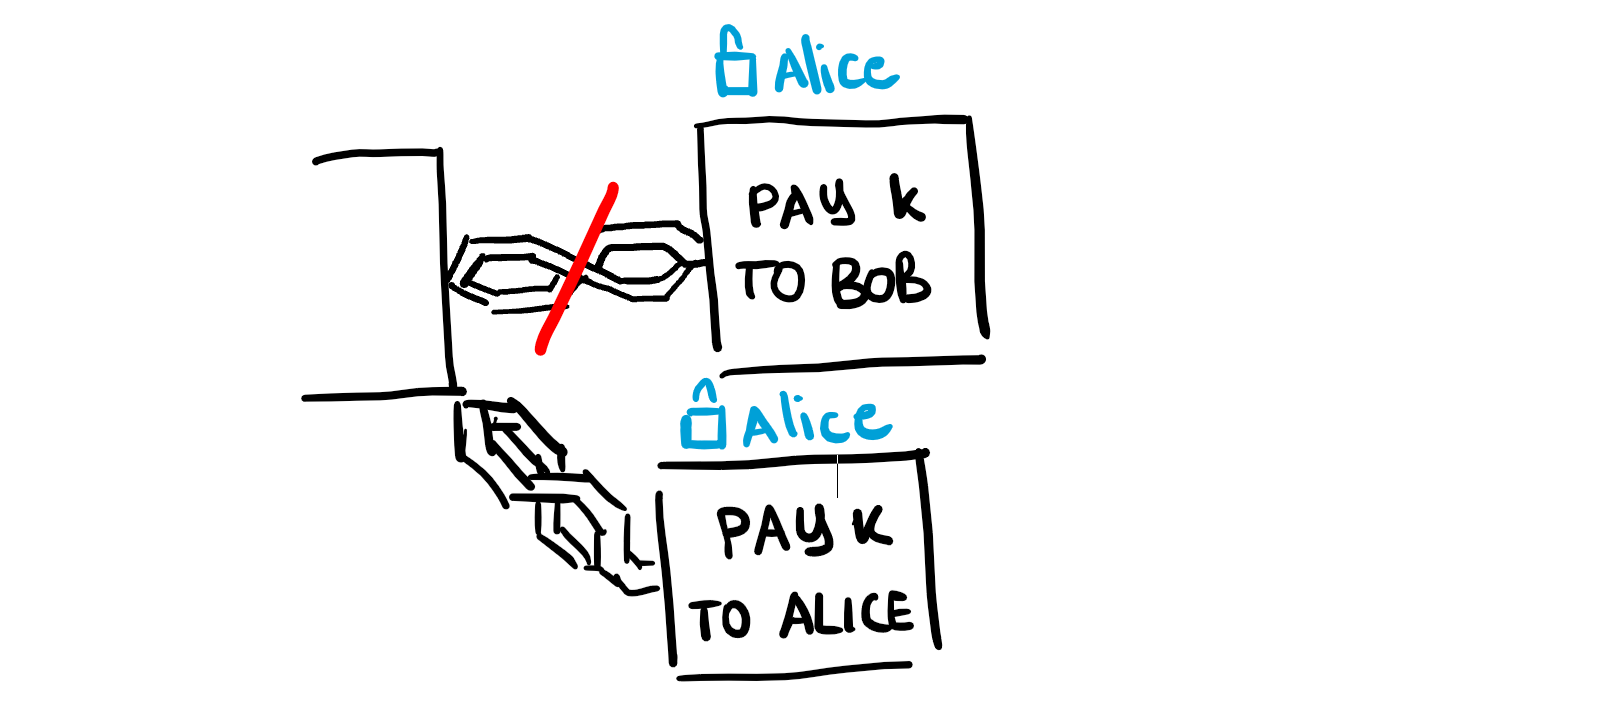 Alice
PAY K
TO BOB
Alice
PAY K
TO ALICE